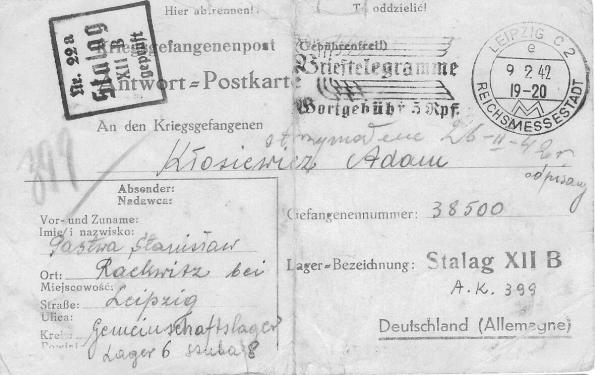 Hier abtrennen! To oddzielić!
Nr. 22a
Stalag
XII B
geprüft
Kriegsgefangenenpost (Gebührenfrei!)
Antwort=Postkarte
Brieftelegramme
Wortgebühr 5 Rpf.
LEIPZIG C 2
e
9 2 42
19-20
REICHSMESSESTADT
An den Kriegsgefangenen
otrzymałem 26-II-42 r
odpisany
Kłosiewicz Adam
399
Absender:
Nadawca:
Vor- und Zuname:
Imię/i nazwisko:
Pastwa Stanisław
Ort: Rackwitz bei
Miejscowość:
Straße: Leipzig
Ulica:
Gemeinschaftslager
Lager 6 stuba 8
Gefangenennummer: 38500
Lager-Bezeichnung: Stalag XII B
A.K. 399
Deutschland (Allemagne)